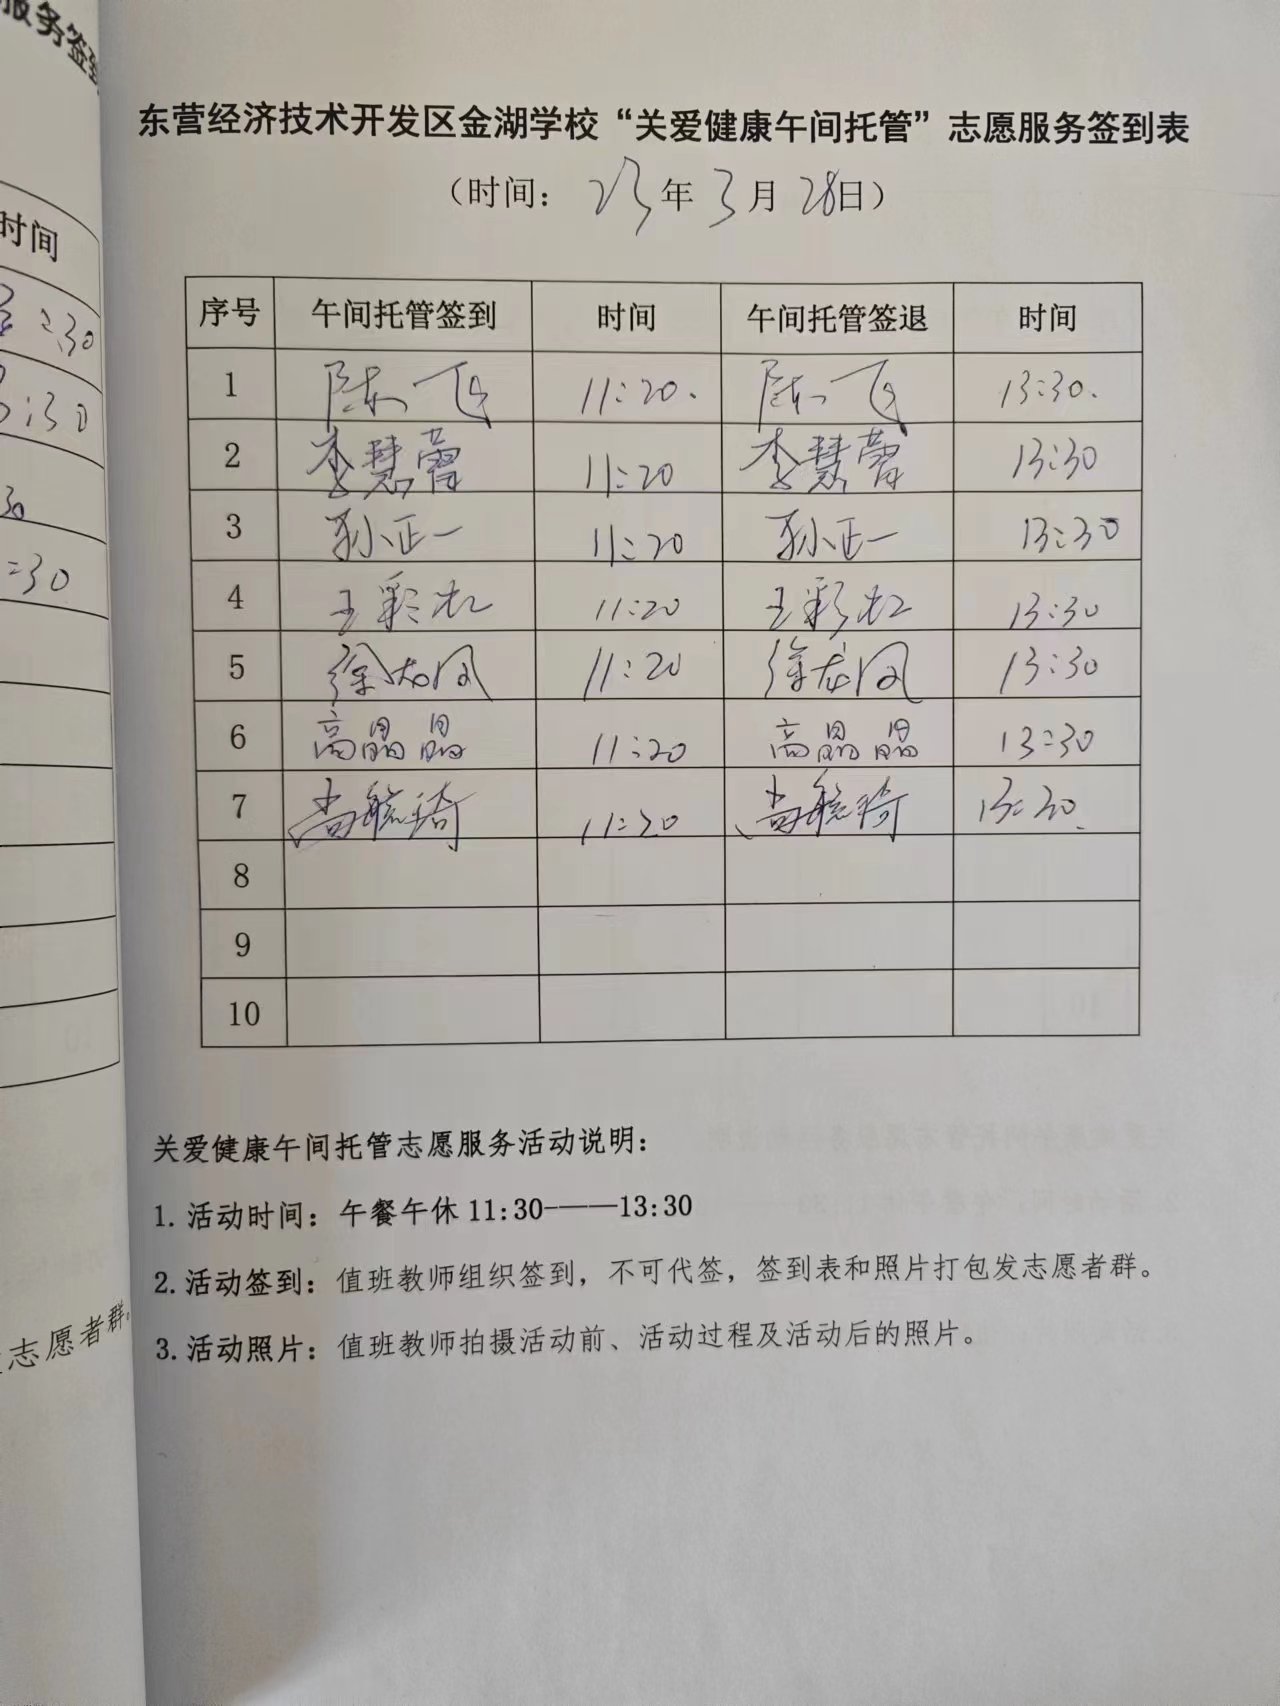 服务签到
时间
:30
3:30
30
:30
志愿者群。
东营经济技术开发区金湖学校“关爱健康午间托管”志愿服务签到表
（时间：23年3月28日）
序号 午间托管签到 时间 午间托管签退 时间
1 陈飞 11:20. 陈飞 13:30.
2 李慧蕾 11:20 李慧蕾 13:30
3 孙正一 11:20 孙正一 13:30
4 王彩虹 11:20 王彩虹 13:30
5 徐龙凤 11:20 徐龙凤 13:30
6 高晶晶 11:20 高晶晶 13:30
7 尚毓琦 11:20 尚毓琦 13:30
8
9
10
关爱健康午间托管志愿服务活动说明：
1. 活动时间：午餐午休 11:30———13:30
2. 活动签到：值班教师组织签到，不可代签，签到表和照片打包发志愿者群。
3. 活动照片：值班教师拍摄活动前、活动过程及活动后的照片。